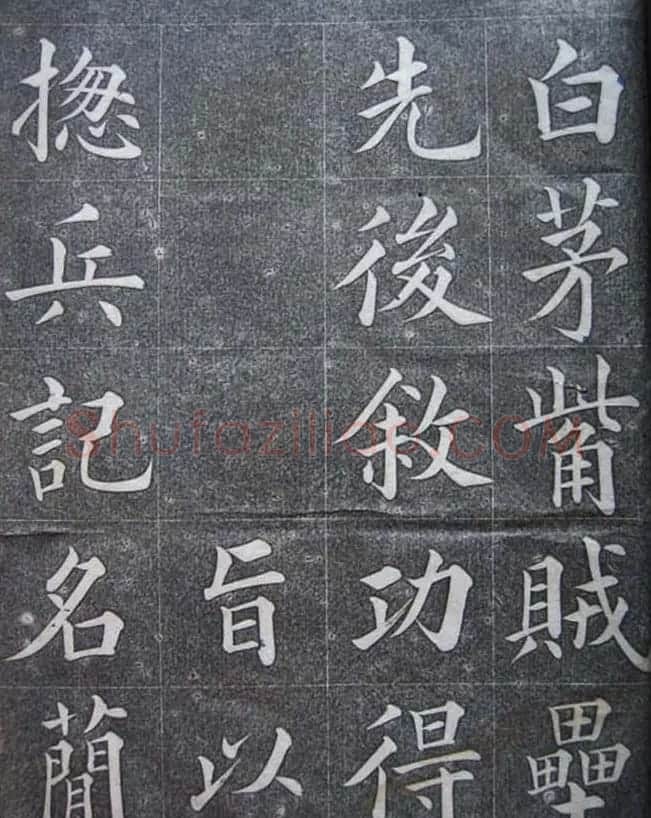 白茅觜賊壘
先後敘功得
旨以
揔兵記名簡
Shufaziliao.COM